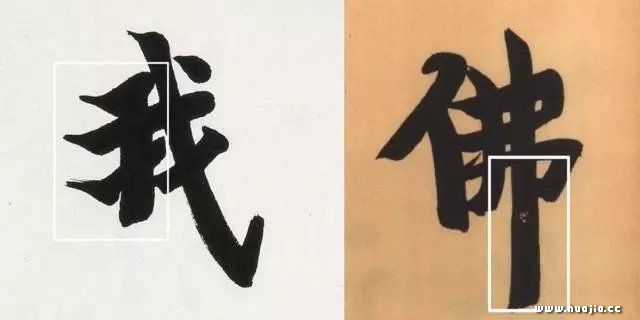 我 佛
www.huajia.cc